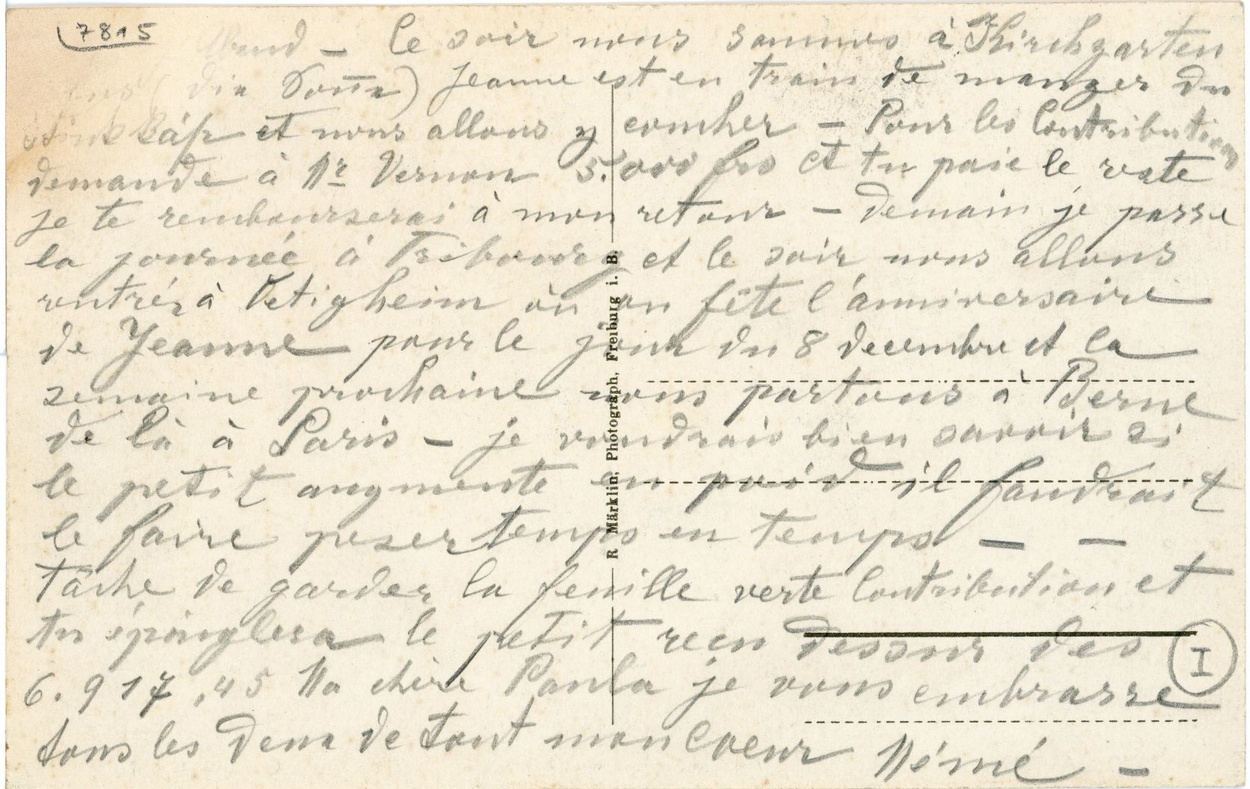 7815
Le soir nous sommes à Kirchgarten
(Die Sonn) Jeanne est en train de manger du
et nous allons y coucher – Pour les Contributions
demande à Mr Vernon 5.000 frs et tu paie le reste
je te rembourserai à mon retour – demain je passe
la journée à Fribourg et le soir nous allons
rentrés à Oetigheim où on fête l'anniversaire
de Jeanne pour le jour du 8 decembre et la
semaine prochaine nous partons à Berne
de là à Paris – je voudrais bien savoir si
le petit augmente en poid il faudrait
le faire peser temps en temps – –
tâche de garder la feuille verte Contribution et
tu épinglera le petit recu dessur des
6.917,45 Ma chère Paula je vous embrasse
tous les deux de tout mon Coeur Mémé –
I
R. Märklin, Photograph, Freiburg i. B.